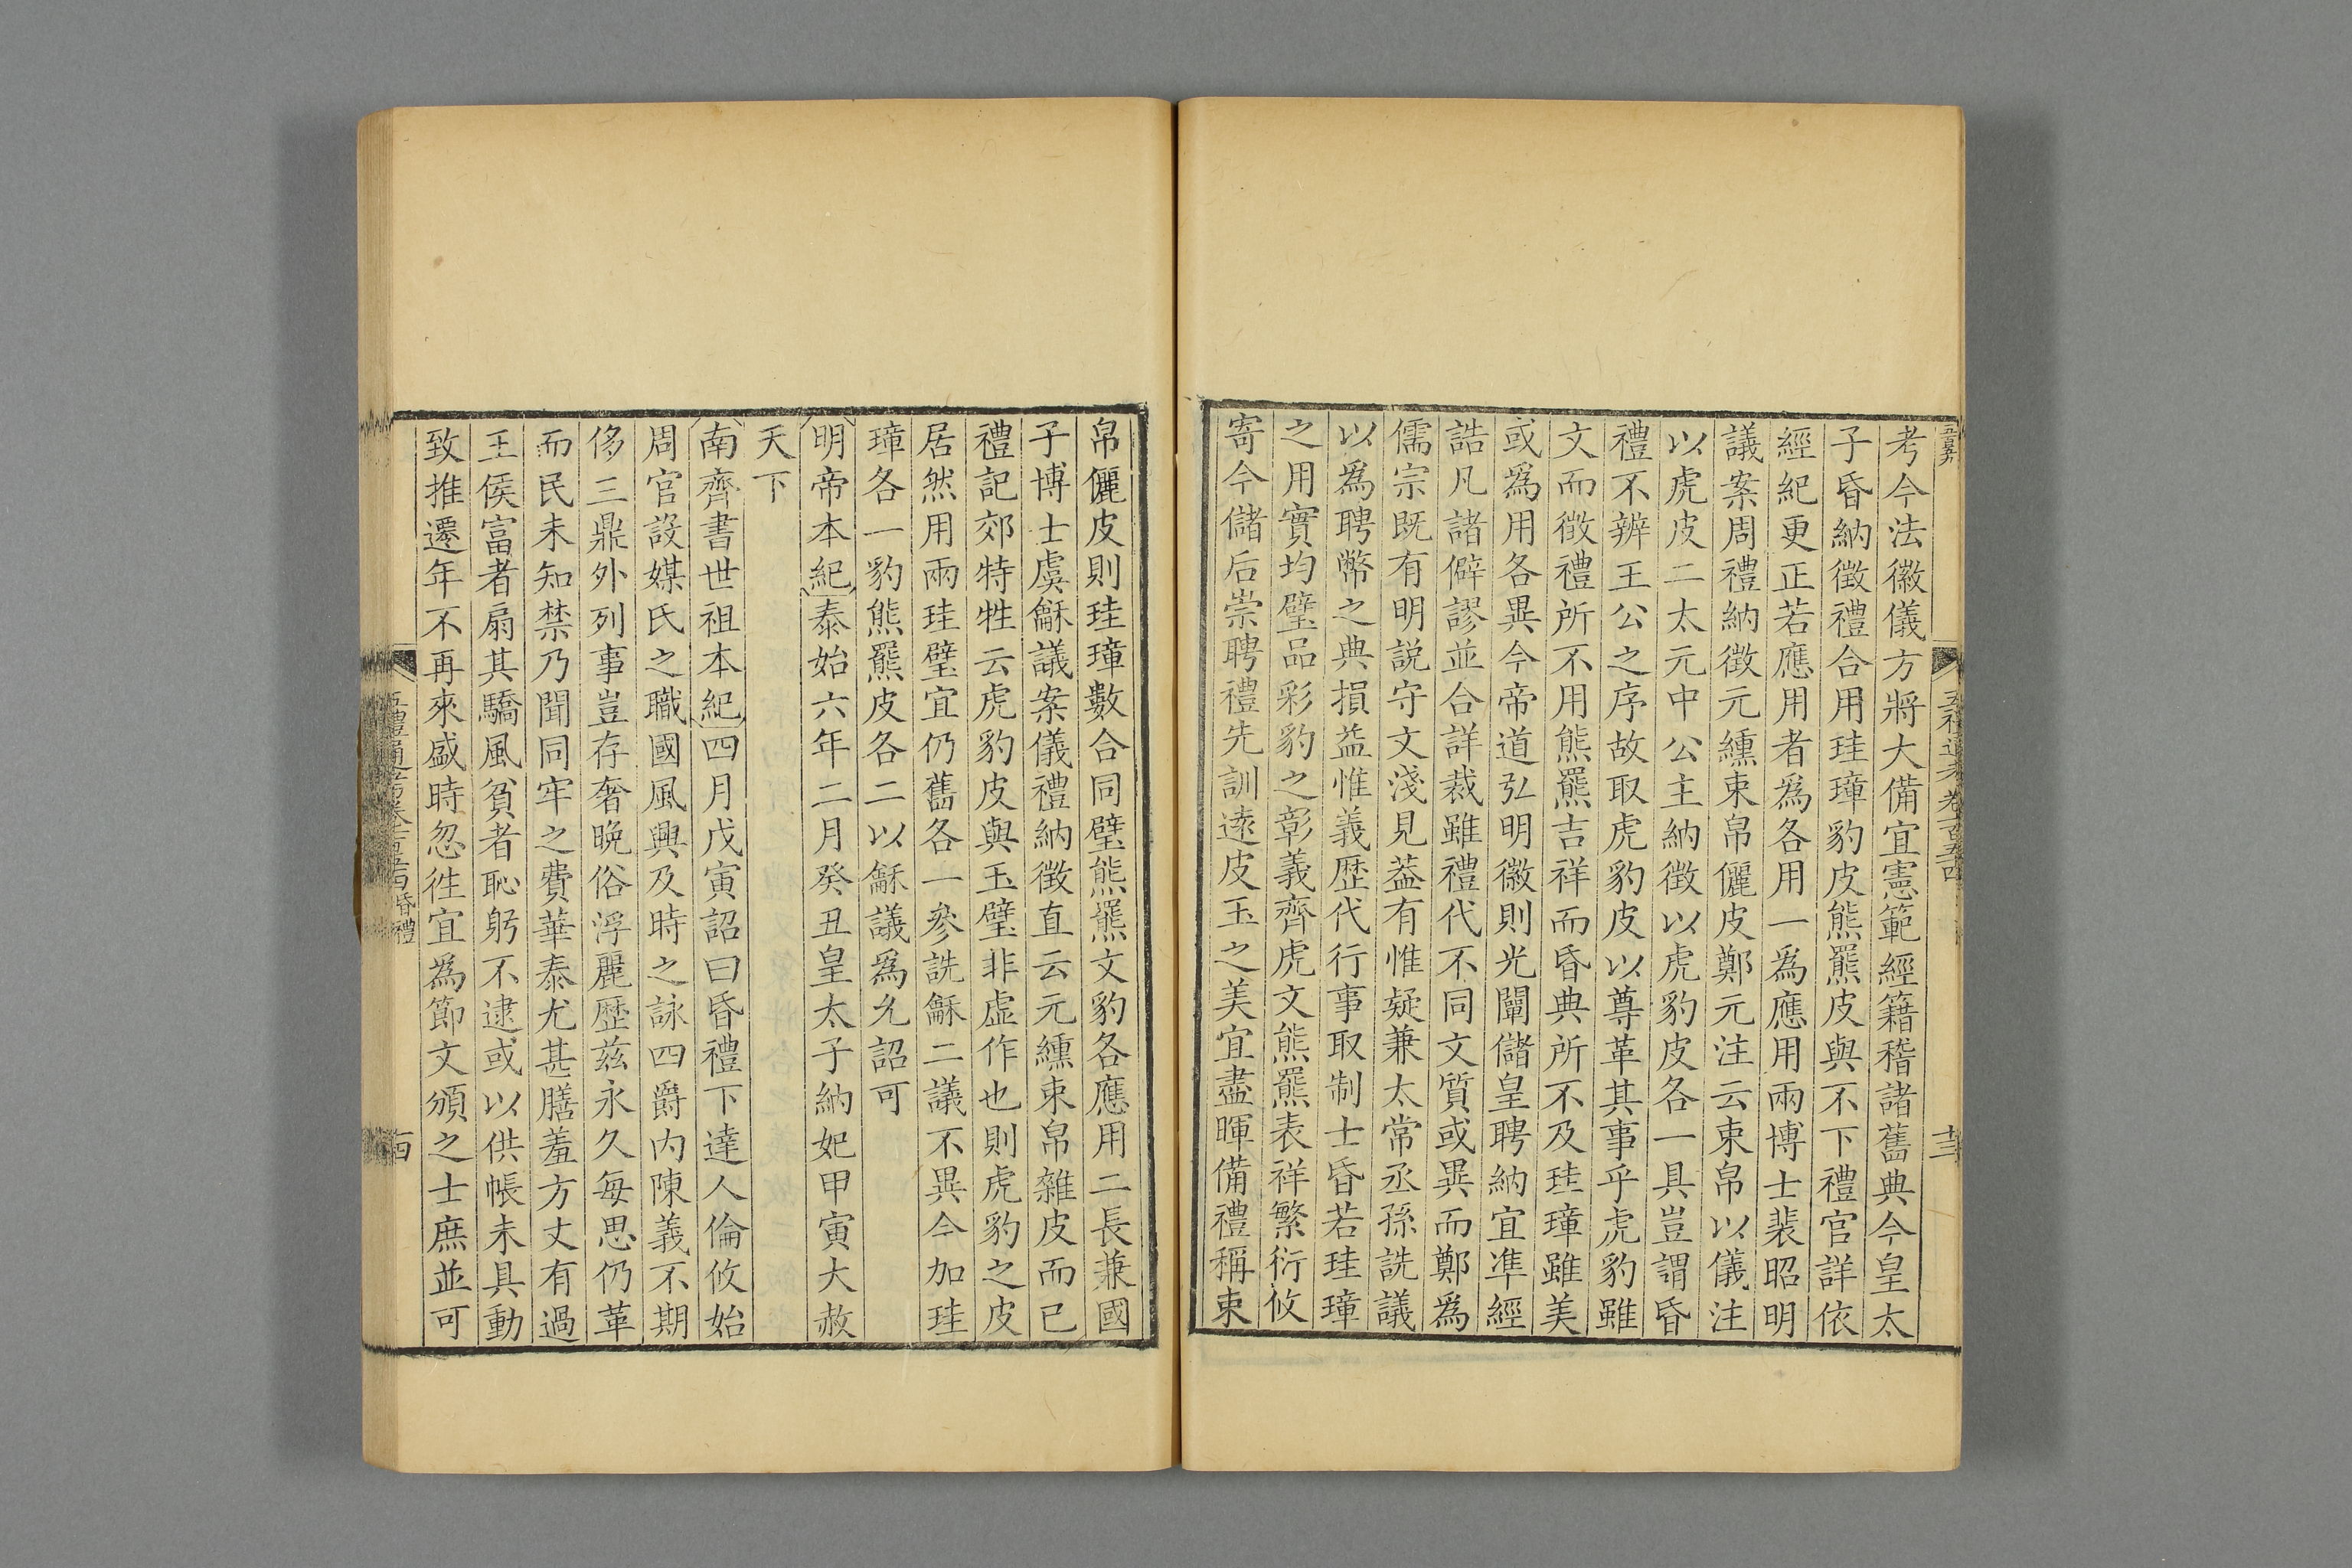 考今法徽儀方將大備宜憲範經籍稽諸舊典今皇太
子昏納徵禮合用珪璋豹皮熊羆皮與不下禮官詳依
經紀更正若應用者爲各用一爲應用兩博士裴昭明
議案周禮納徵元纁束帛儷皮鄭元注云束帛以儀注
以虎皮二太元中公主納徵以虎豹皮各一具豈謂昏
禮不辨王公之序故取虎豹皮以尊革其事乎虎豹雖
文而徵禮所不用熊羆吉祥而昏典所不及珪璋雖美
或爲用各異今帝道弘明徽則光闡儲皇聘納宜準經
誥凡諸僻謬並合詳裁雖禮代不同文質或異而鄭爲
儒宗既有明説守文淺見葢有惟疑兼太常丞孫詵議
以爲聘幣之典損益惟義歴代行事取制士昏若珪璋
之用實均璧品彩豹之彰義齊虎文熊羆表祥繁衍攸
寄今儲后崇聘禮先訓逺皮玉之美宜盡暉備禮稱束
帛儷皮則珪璋數合同璧熊羆文豹各應用二長兼國
子博士虞龢議案儀禮納徵直云元纁束帛雜皮而已
禮記郊特牲云虎豹皮與玉璧非虛作也則虎豹之皮
居然用兩珪璧宜仍舊各一參詵龢二議不異今加珪
璋各一豹熊羆皮各二以龢議爲允詔可
明帝本紀泰始六年二月癸丑皇太子納妃甲寅大赦
天下
南齊書世祖本紀四月戊寅詔曰昏禮下達人倫攸始
周官設媒氏之職國風興及時之詠四爵内陳義不期
侈三鼎外列事豈存奢晩俗浮麗歴兹永久每思仍革
而民未知禁乃聞同牢之費華泰尤甚膳羞方丈有過
王侯富者扇其驕風貧者恥躬不逮或以供帳未具動
致推遷年不再來盛時忽徃宜爲節文頒之士庶並可
五禮通考卷一百五十四 昏禮